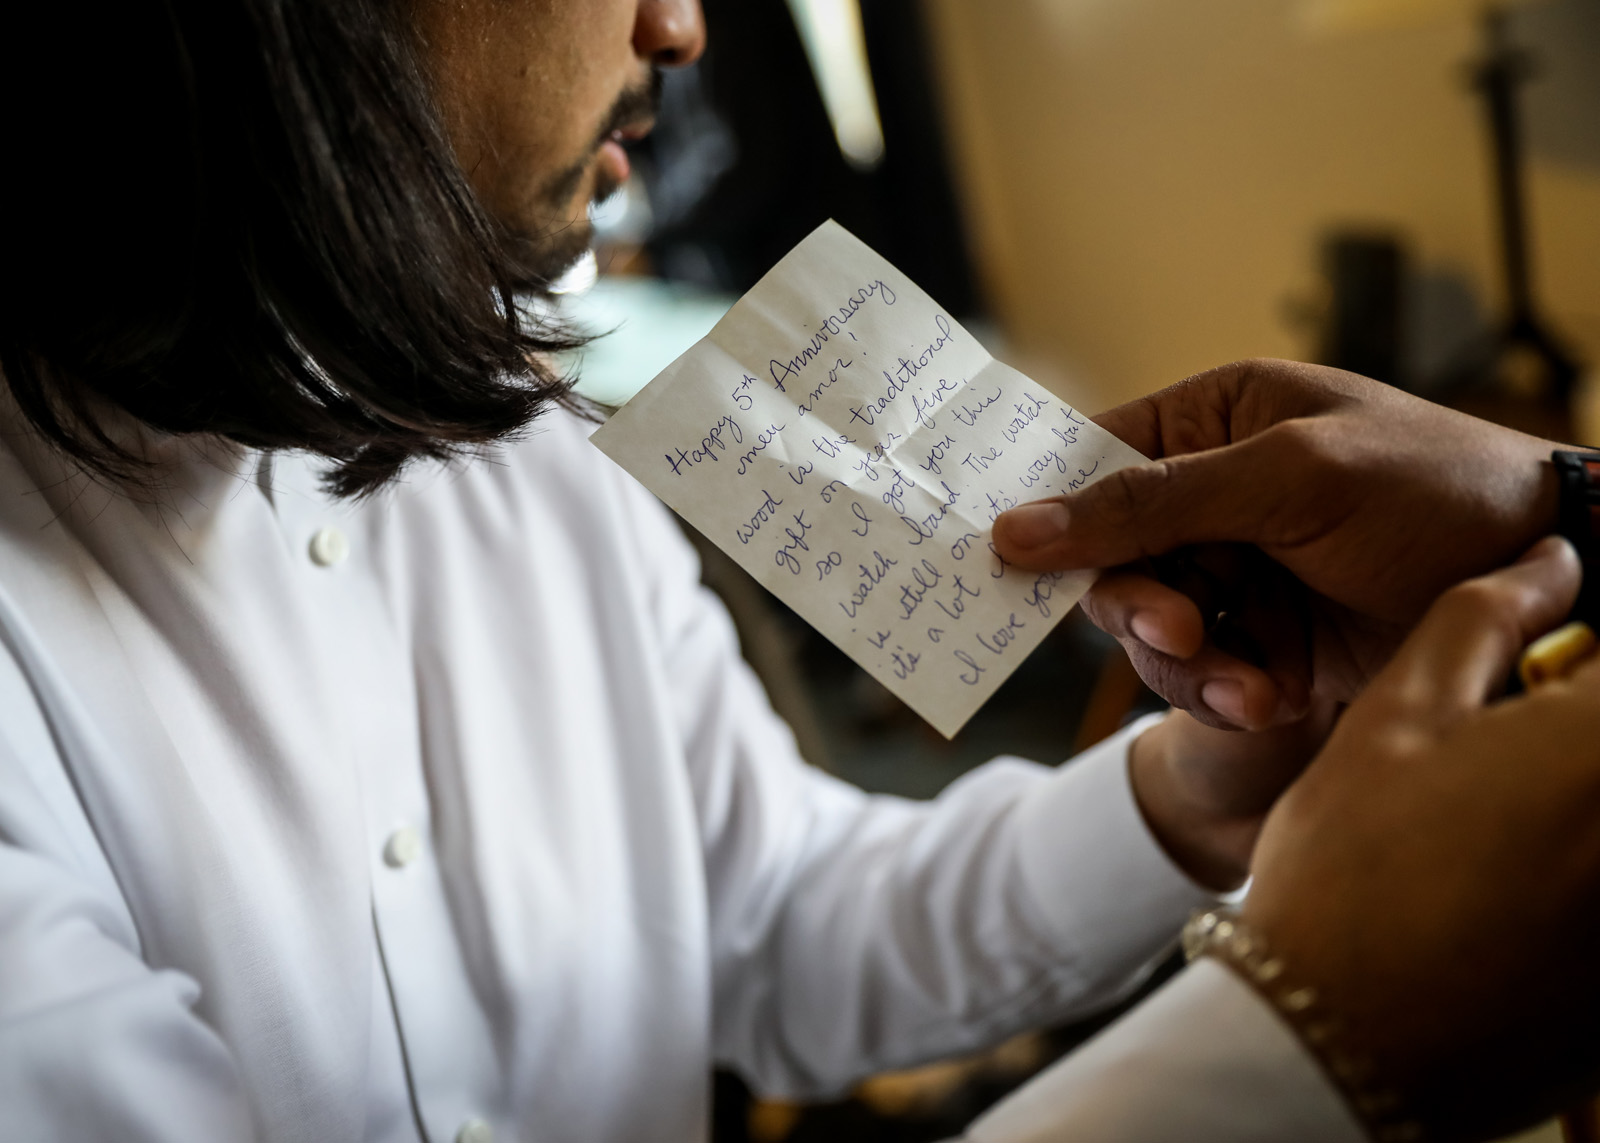 Happy 5th Anniversary
meu amor!
wood is the traditional
gift on year five,
so I got you this
watch band. The watch
is still on it's way but
it's a lot
I love you